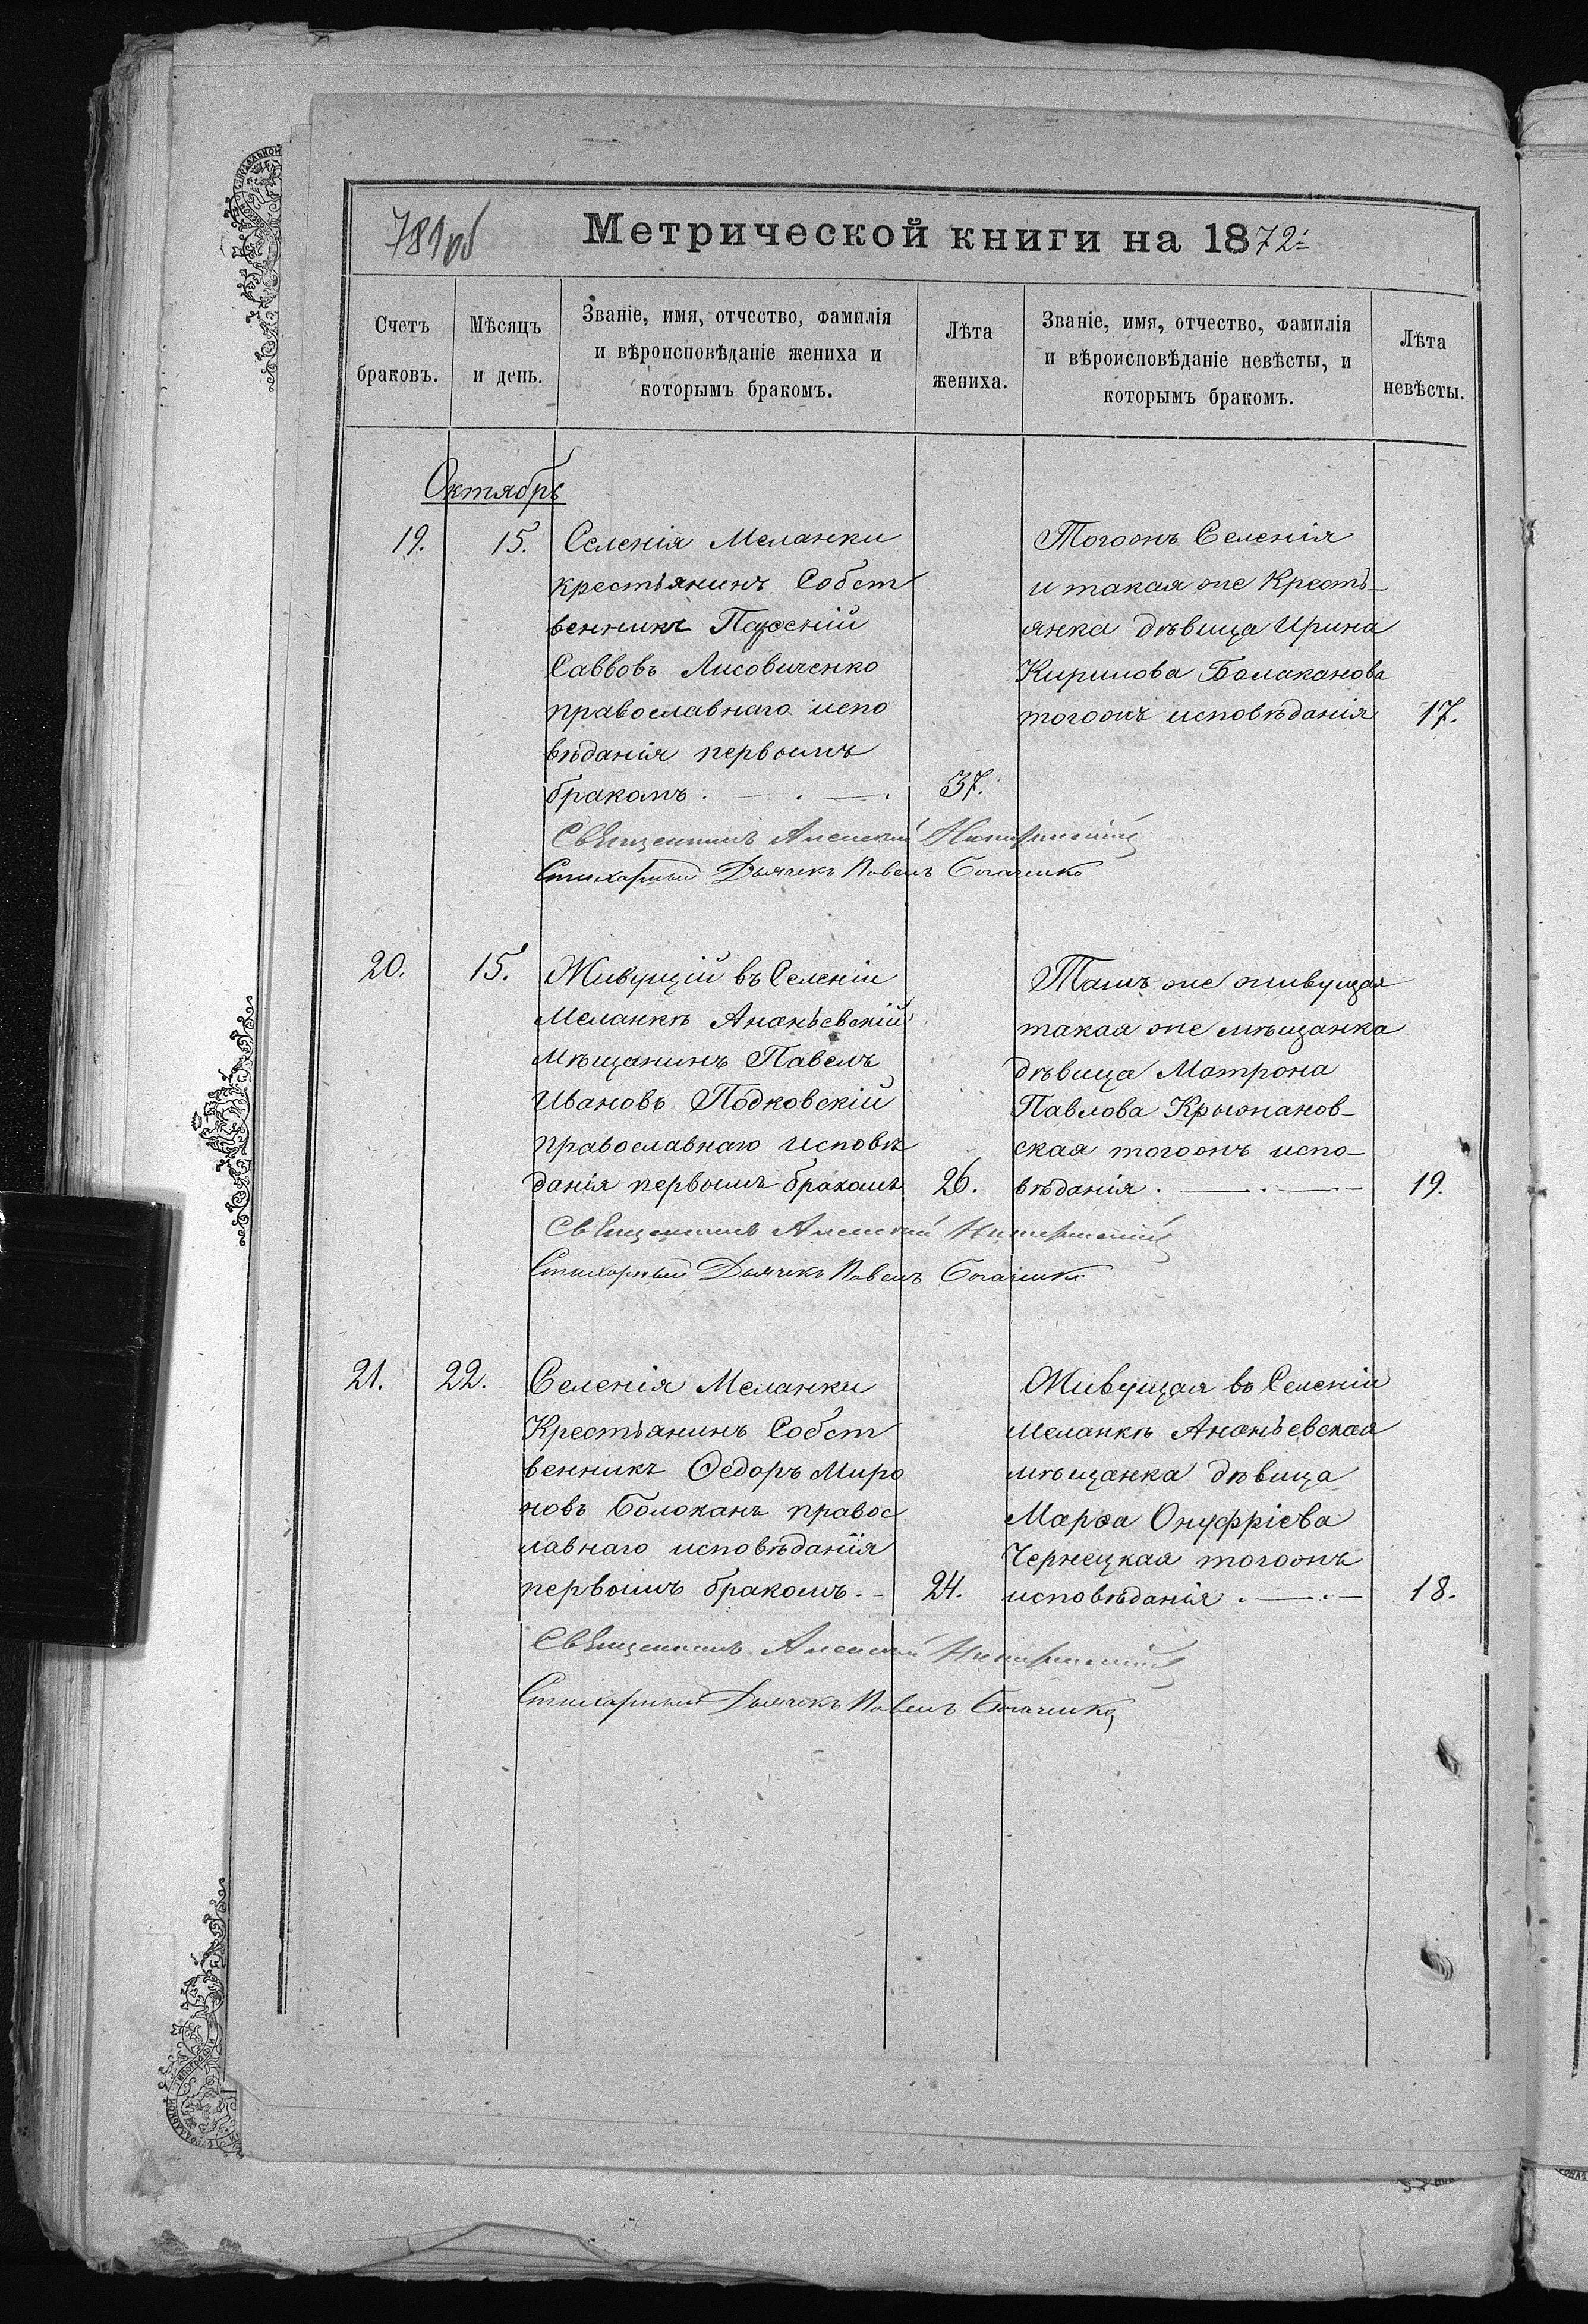 781 об
Метрической книги на 1872:
Счетъ браковъ.
Мѣсяцъ и день.
Званіе, имя, отчество, фамилія и вѣроисповѣданіе жениха и которымъ бракомъ.
Лѣта жениха.
Званіе, имя, отчество, фамилія и вѣроисповѣданіе невѣсты, и которымъ бракомъ.
Лѣта невѣсты.
Октябрь
19.
15.
Селенія Меланки
крестьянинъ Собст
венникъ
Саввовъ Лисовиченко
православнаго испо
вѣданія первымъ
бракомъ.
37.
Тогожъ Селенія
и такая же Кресть-
янка дѣвица Ирина
Кирилова Балаканова
тогожъ исповѣданія
17.
Священникъ Алексій
Стихарный Дьячекъ Павелъ Богаченко
20.
15.
Живущій въ Селеніи
Меланкѣ Ананьевскій
Мѣщанинъ Павелъ
Ивановъ Подковскій
православнаго исповѣ
данія первымъ бракомъ
26.
Тамъ же живущая
такая же мѣщанка
дѣвица Матрона
Павлова Крыжанов-
ская тогожъ испо-
вѣданія.
19.
Священникъ Алексій
Стихарный Дьячекъ Павелъ Богаченко
21.
22.
Селенія Меланки
Крестьянинъ Собст
венникъ Ѳедоръ Миро
новъ Болоканъ правос
лавнаго исповѣданія
первымъ бракомъ.-
24.
Живущая въ Селеніи
Меланкѣ Ананьевская
мѣщанка дѣвица
Марѳа Онуфріева
Чернецкая тогожъ
исповѣданія.
18.
Священникъ Алексій
Стихарный Дьячекъ Павелъ Богаченко